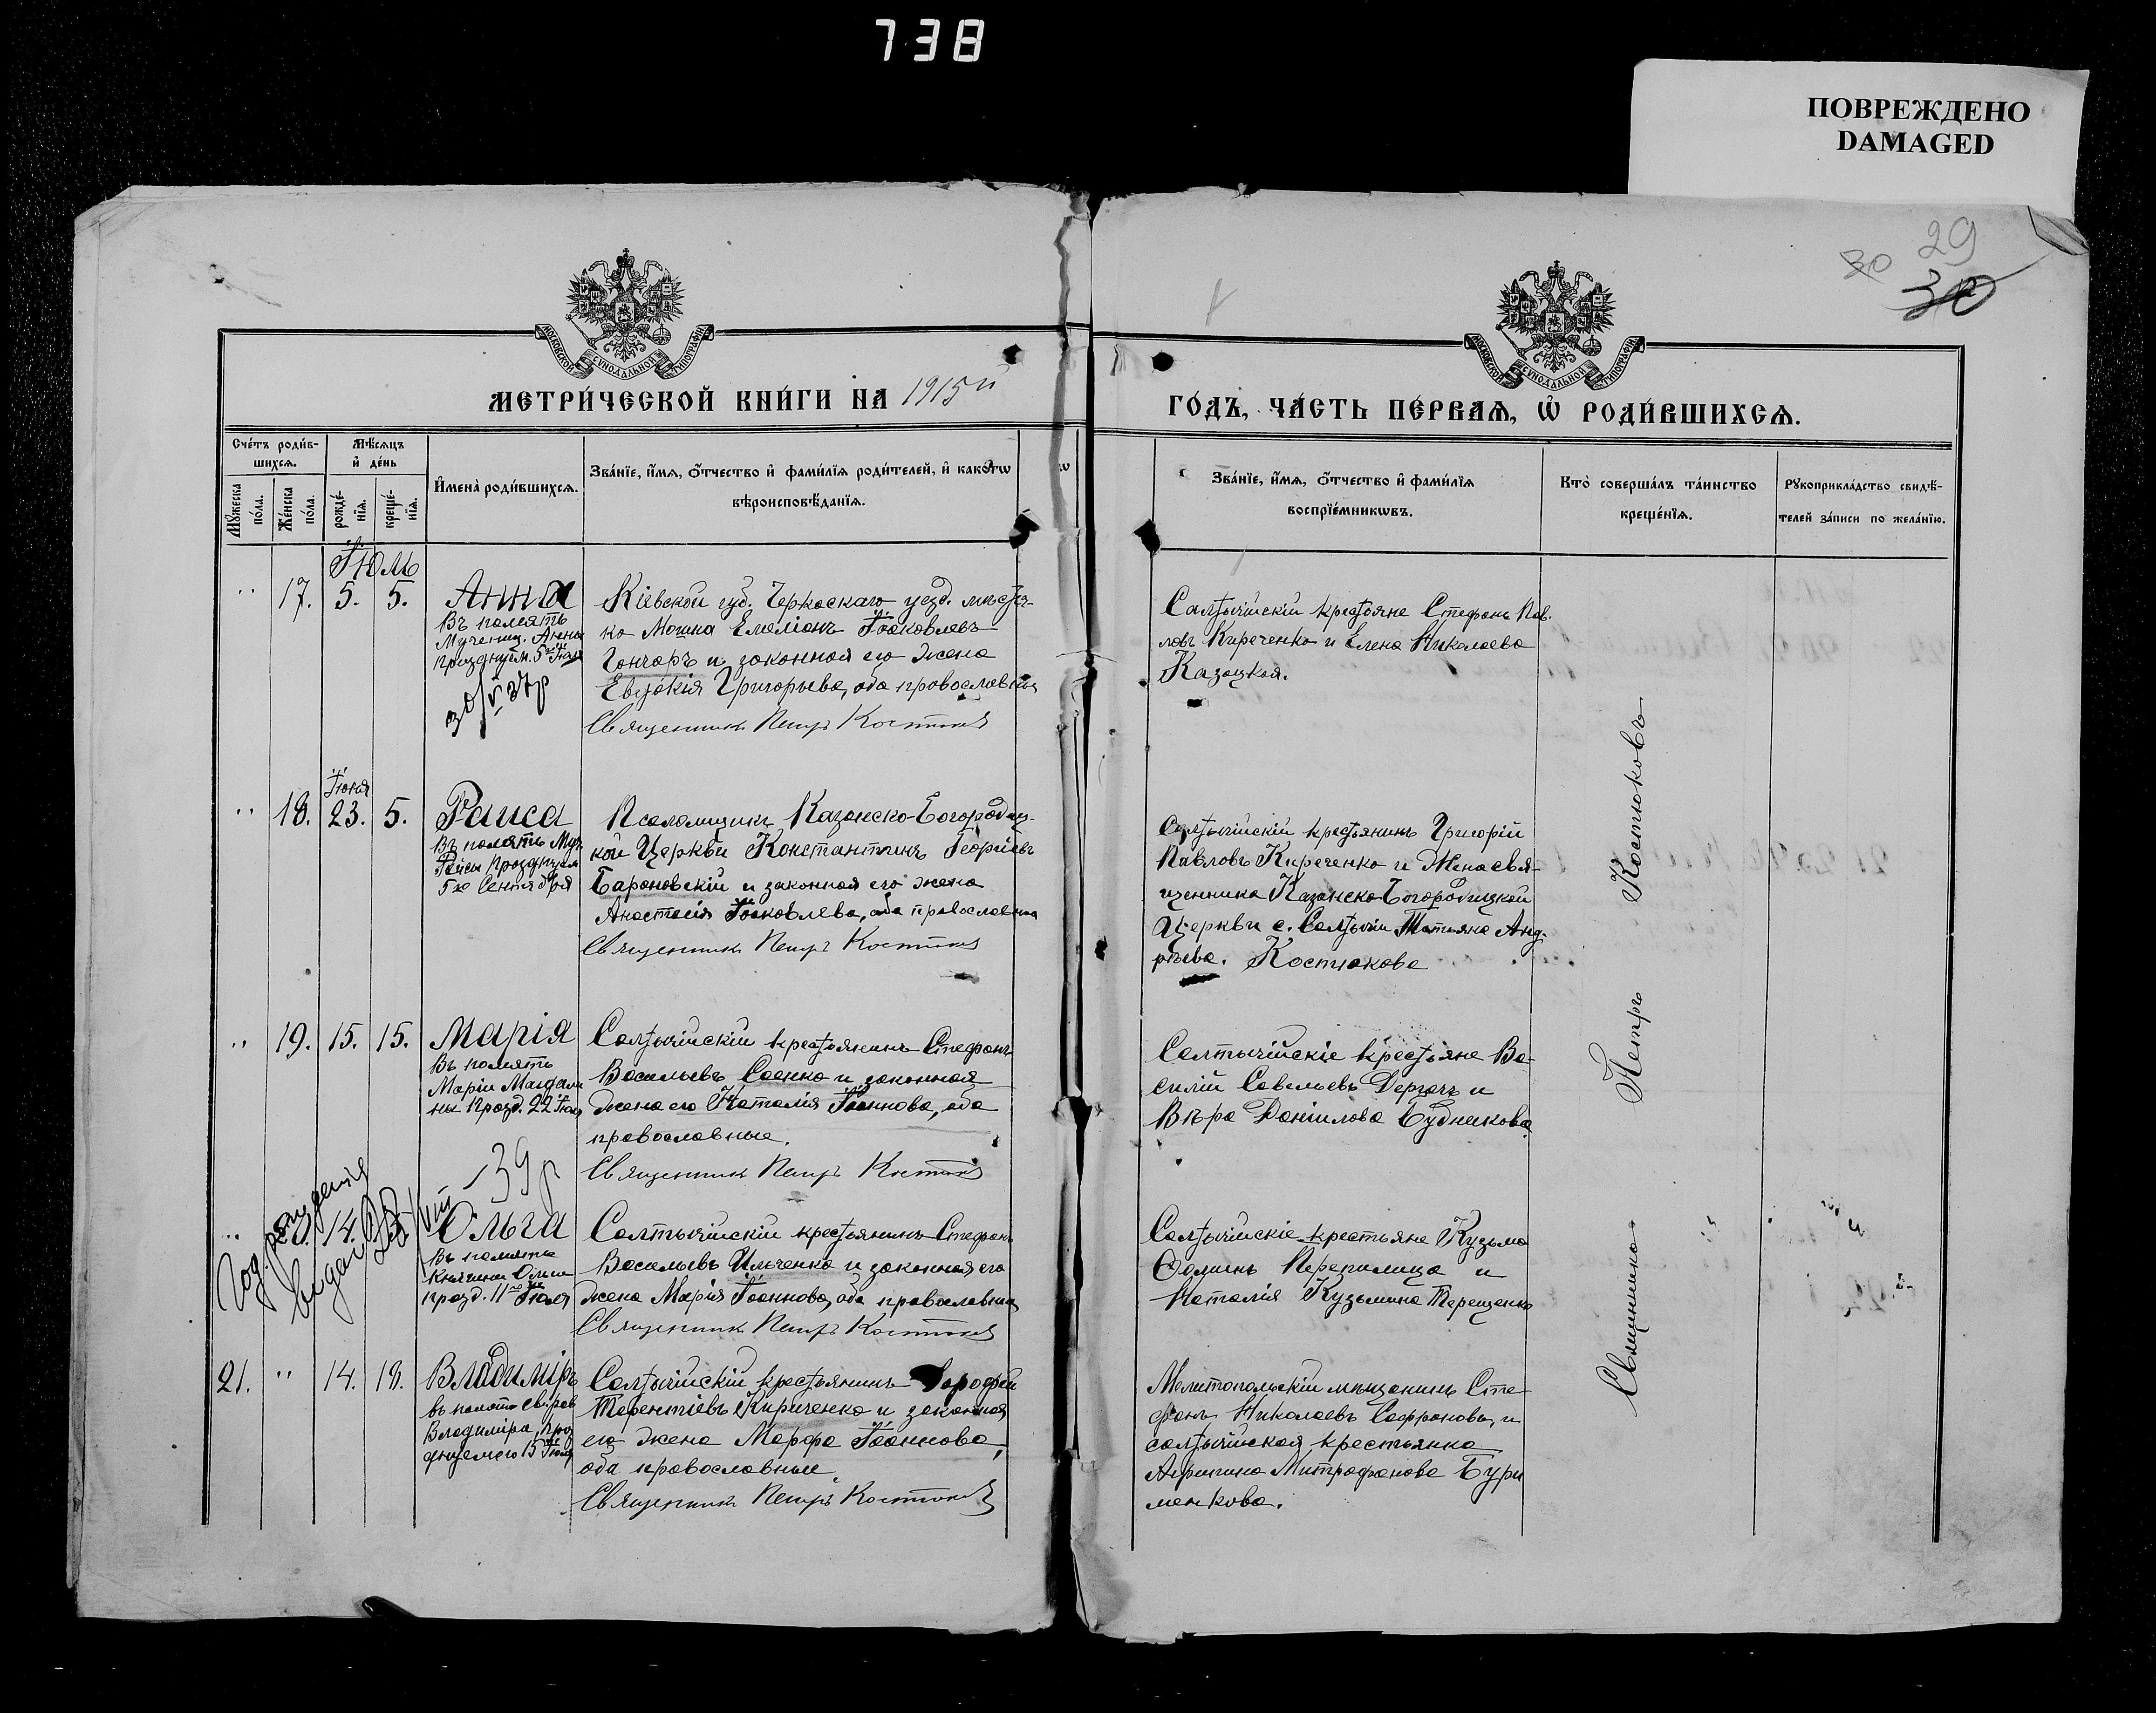 738
ПОВРЕЖДЕНО
DAMAGED
29
30
30
МОСКОВСКОЙ СѴНОДАЛЬНОЙ ТИПОГРАФІИ
МОСКОВСКОЙ СѴНОДАЛЬНОЙ ТИПОГРАФІИ
МЕТРИ́ЧЕСКОЙ КНИ́ГИ НА 1915й
ГО́ДЪ, ЧА́СТЬ ПЕ́РВАѦ, Ѡ҆ РОДИ́ВШИХСѦ.
Сче́тъ роди́в-
шихсѧ.
Мꙋ́жеска по́ла.
Же́нска по́ла.
Мѣ́сѧцъ
и҆ де́нь
рожде́-
нїѧ.
креще́-
нїѧ.
И҆мена̀ роди́вшихсѧ.
Зва́нїе, и҆́мѧ, ѻ҆́тчество и҆ фами́лїѧ роди́телей, и҆ како́гѡ
вѣроисповѣ́данїѧ.
Зва́нїе, и҆́мѧ, ѻ҆́тчество и҆ фами́лїѧ
воспрїе́мникѡвъ.
Кто̀ соверша́лъ та́инство
креще́нїѧ.
Рꙋкоприкла́дство свидѣ́-
телей за́писи по жела́нїю.
Іюль
" 17. 5. 5.
Анна
Въ память
Мучениц. Анны
празднуем. 5го Іюля
30/V 37р
Кіевской губ. Черкаскаго уезд. мѣстеч-
ко Мошна Емеліанъ Іоаковлевъ
Гончаръ и законная его жена
Евдокія Григорьева, оба православные
Священникъ Петръ Костюковъ
Салтычійскіи крестьяне Стефанъ Пав-
ловъ Киреченко и Елена Николаева
Казацкая.
Іюня
" 18. 23. 5.
Раиса
Въ память Муч.
Раисы празднуем
5го Сентября
Псаломщикъ Казанско-Богородиц-
кой Церкви Константинъ Георгіевъ
Барановскій и законная его жена
Анастасія Іоаковлева, оба православные
Священникъ Петръ Костюковъ
Салтычійскій крестьянинъ Григорій
Павловъ Киреченко и Жена свя-
щенника Казанско-Богородицкой
Церкви с. Салтычіи Татьяна Анд-
рѣева. Костюкова
" 19. 15. 15.
Марія
Въ память
Маріи Магдали
ны празд. 22 Іюля
Салтычійскій крестьянинъ Стефанъ
Васильевъ Саенко и законная
жена его Наталія Іоаннова, оба
православные.
Священникъ Петръ Костюковъ
Салтычійскіе крестьяне Ва-
силій Савельевъ Дергачъ и
Вѣра Даніилова Будникова.
39р
" 20. 14.
Ольга
Въ память
Княгини Ольги
празд. 11го Іюля
Салтычійскій крестьянинъ Стефанъ
Васильевъ Ильченко и законная его
жена Марія Іоаннова, оба православные
Священникъ Петръ Костюковъ
Салтычійскіе крестьяне Кузьма
Фоминъ Перепилица и
Наталія Кузьмина Терещенко
21. " 14. 18.
Владиміръ
въ память Св. рав
Владиміра, праз
днуемаго 15 Іюля
Салтычійскій крестьянинъ Дорофей
Терентіевъ Кириченко и законная
его жена Марфа Іоаннова,
оба православные.
Священникъ Петръ Костюковъ
Мелитопольскій мѣщанинъ Сте-
фанъ Николаевъ Сафроновъ, и
салтычійская крестьянка
Агрипина Митрофанова Бури
менкова.
Священникъ Петръ Костюковъ